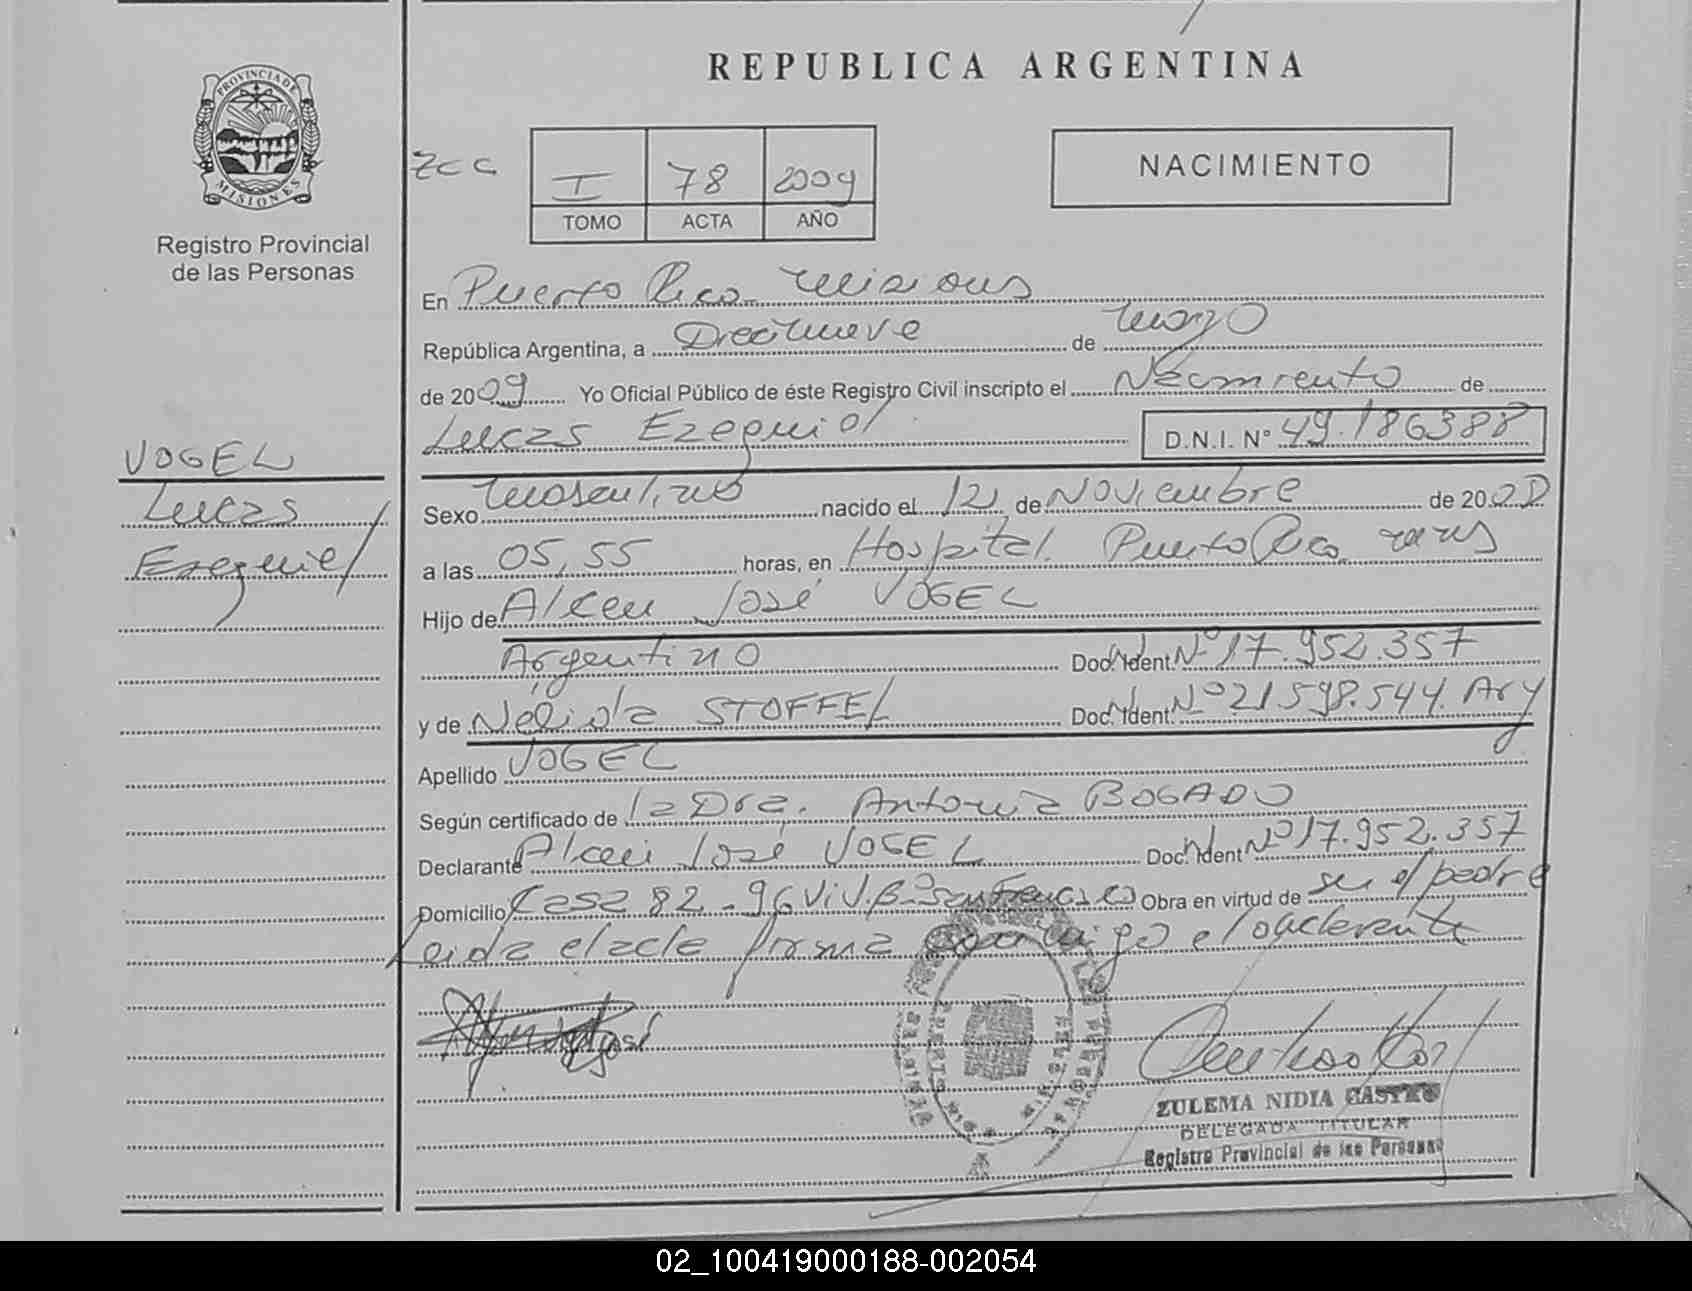 REPUBLICA ARGENTINA
PROVINCIA DE
MISIONES
Registro Provincial
de las Personas
I 78 2009
TOMO ACTA AÑO
NACIMIENTO
En Puerto Rico Misiones
República Argentina, a Diecinueve de marzo
de 2009 Yo Oficial Público de éste Registro Civil inscripto el Nacimiento de
Lucas Ezequiel D.N.I. Nº 49.186388
VOGEL
Lucas
Ezequiel
Sexo masculino nacido el 12 de Noviembre de 20
a las 05,55 horas, en Hospital Puerto Rico
Hijo de Alceu José VOGEL
Argentino Doc. Ident. Nº 17.952.357
y de Nélida STOFFEL Doc. Ident. Nº 21598.544. Arg
Apellido VOGEL
Según certificado de la Dra. Antonia BOGADO
Declarante Alceu José VOGEL Doc. Ident. Nº 17.952.357
Domicilio Casa 82 - 96 Viv. Bº San Francisco Obra en virtud de ser el padre
Leida el acta firma conmigo el declarante
ZULEMA NIDIA CASTRO
DELEGADA TITULAR
Registro Provincial de las Personas
02_100419000188-002054